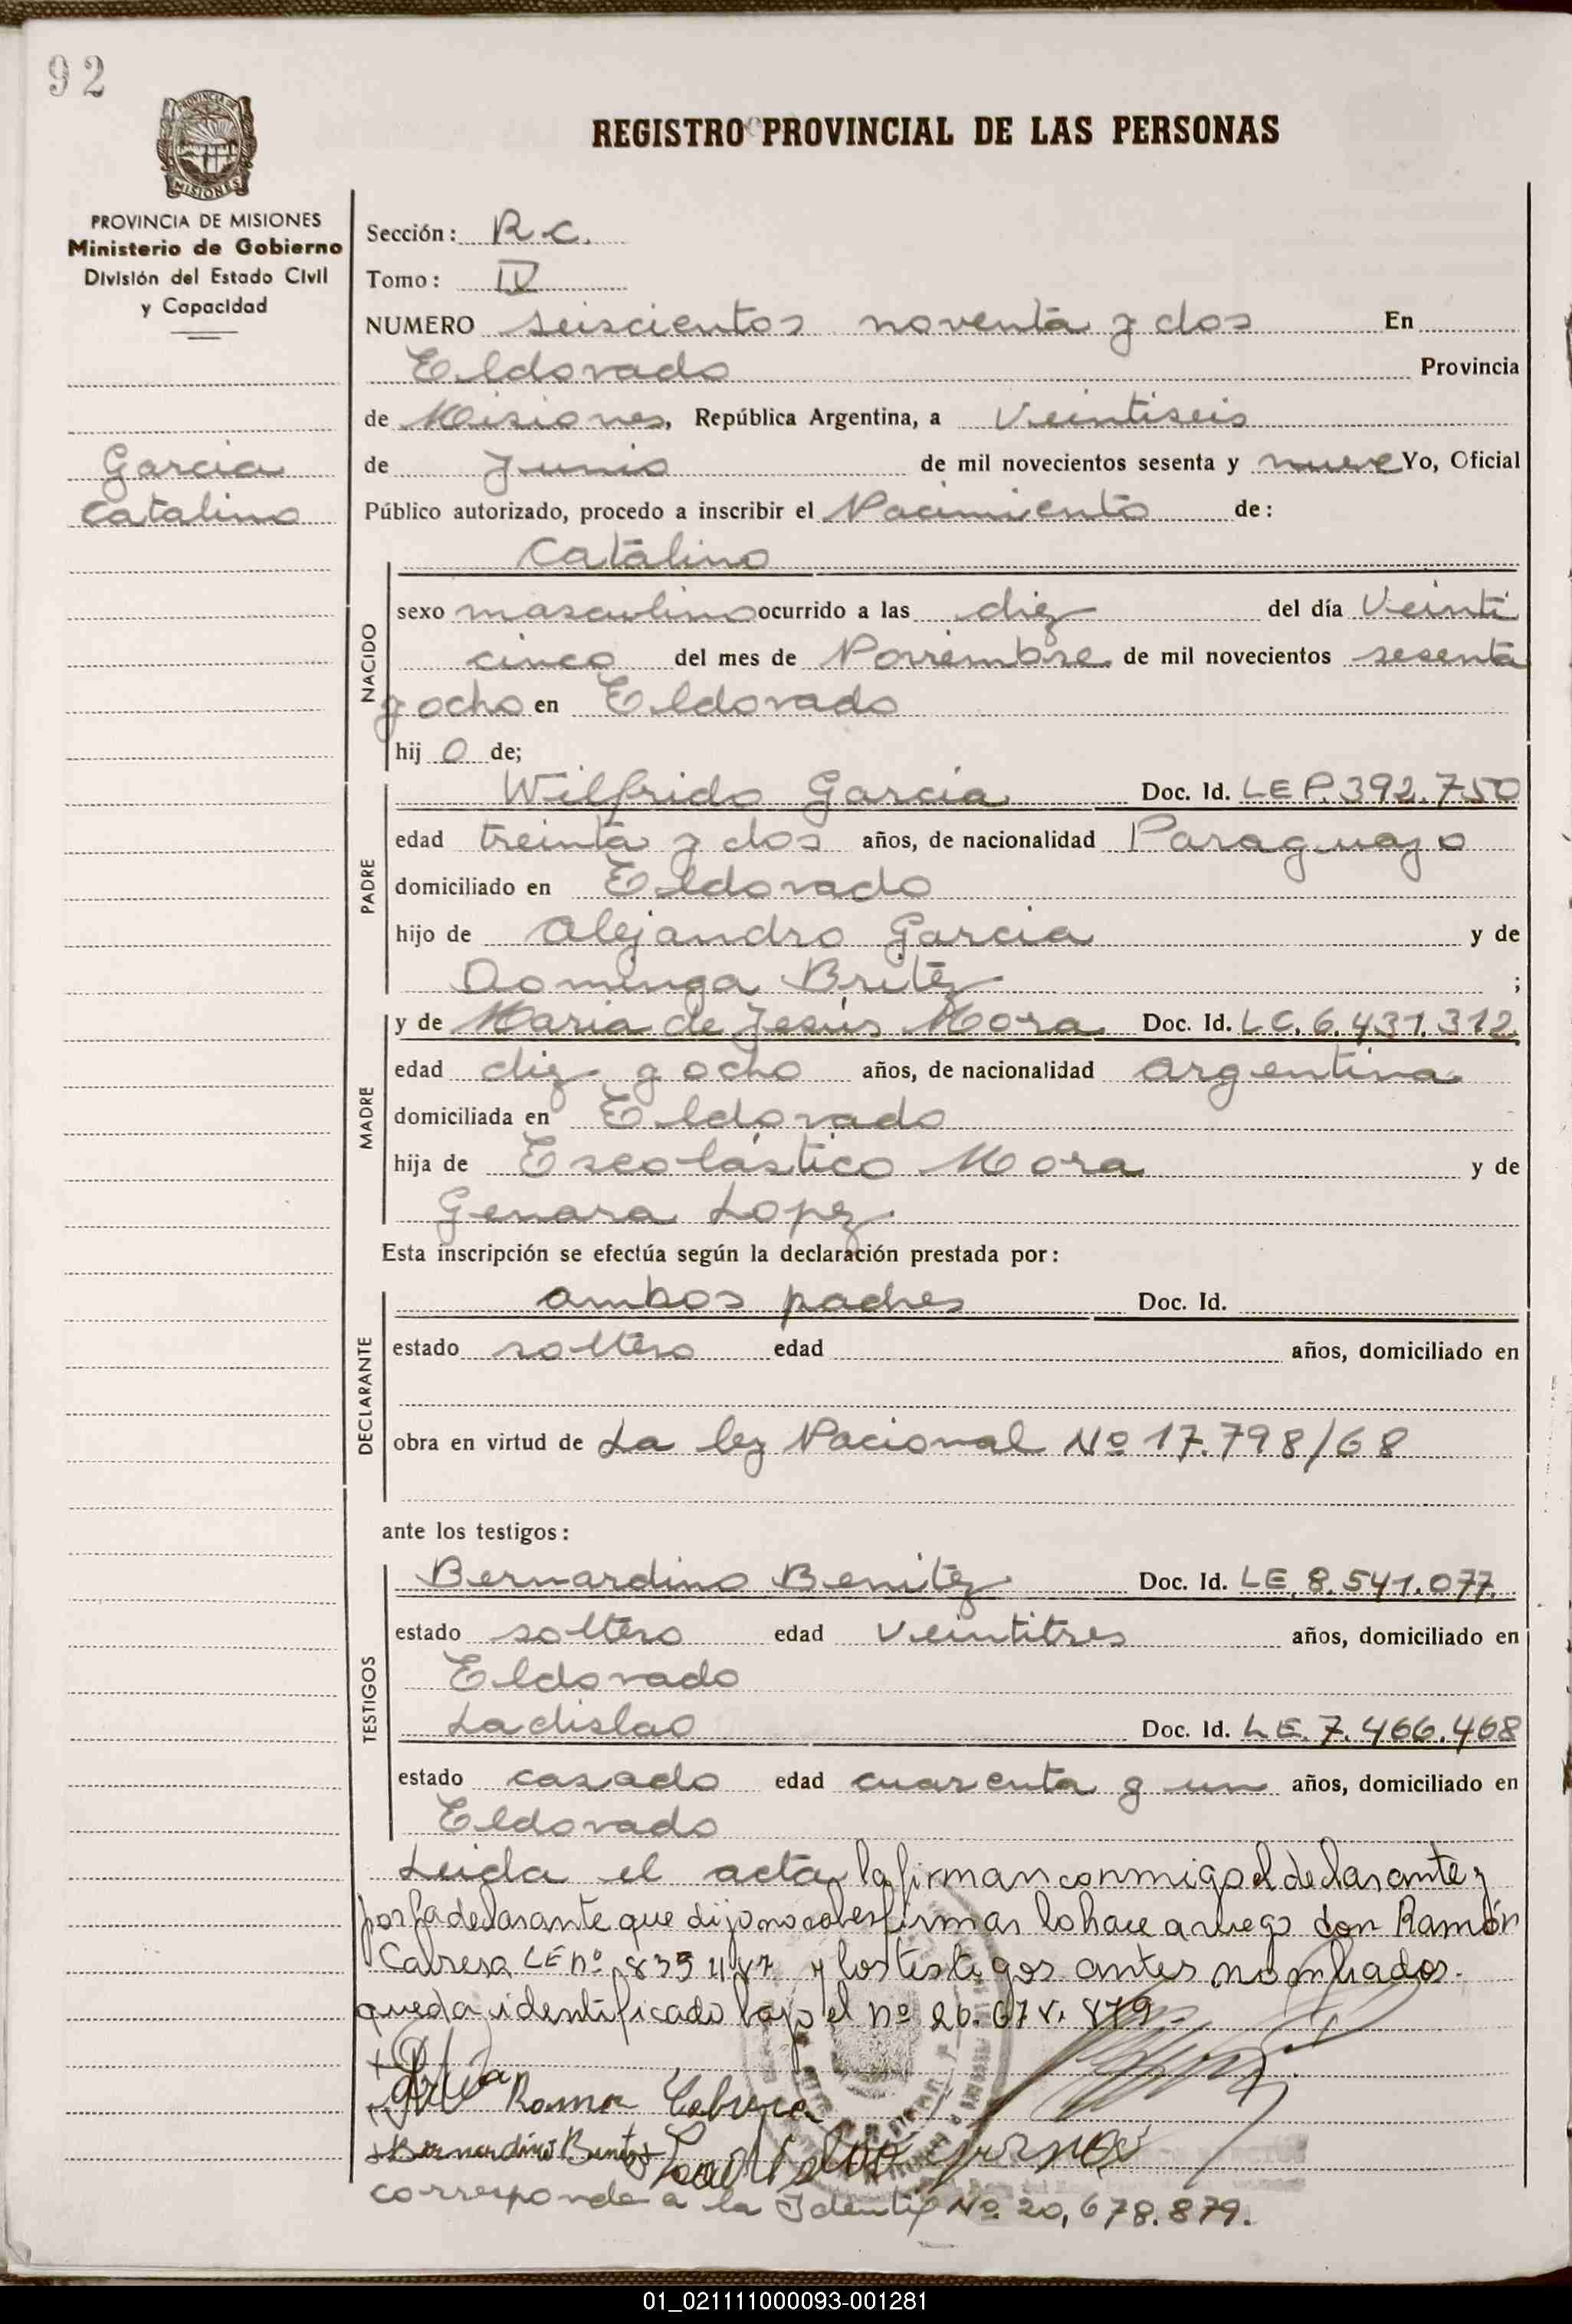 92
PROVINCIA DE MISIONES
Ministerio de Gobierno
División del Estado Civil
y Capacidad
Garcia
Catalino
REGISTRO PROVINCIAL DE LAS PERSONAS
Sección: R.C.
Tomo: IV
NUMERO seiscientos noventa y dos En
Eldorado Provincia
de Misiones, República Argentina, a Veintiseis
de Junio de mil novecientos sesenta y nueve Yo, Oficial
Público autorizado, procedo a inscribir el Nacimiento de:
Catalino
NACIDO
sexo masculino ocurrido a las diez del día Veinti
cinco del mes de Noviembre de mil novecientos sesenta
y ocho en Eldorado
hij o de;
PADRE
Wilfrido Garcia Doc. Id. LE P.392.750
edad treinta y dos años, de nacionalidad Paraguayo
domiciliado en Eldorado
hijo de Alejandro Garcia y de
Dominga Britez ;
MADRE
y de Maria de Jesús Mora Doc. Id. LC. 6.431.312
edad diez y ocho años, de nacionalidad argentina
domiciliada en Eldorado
hija de Escolástico Mora y de
Genara Lopez
Esta inscripción se efectúa según la declaración prestada por:
DECLARANTE
ambos padres Doc. Id.
estado soltero edad años, domiciliado en
obra en virtud de La ley Nacional Nº 17.798/68
ante los testigos:
TESTIGOS
Bernardino Benitez Doc. Id. LE. 8.541.077.
estado soltero edad veintitres años, domiciliado en
Eldorado
Ladislao Doc. Id. LE. 7.466.468
estado casado edad cuarenta y un años, domiciliado en
Eldorado
Leida el acta la firman conmigo el declarante y
por la declarante que dijo no saber firmar lo hace a ruego don Ramón
Cabrera LE nº y los testigos antes nombrados.
queda identificado bajo el nº 20.678.879
Ramon Cabrera
Bernardino Benitez
corresponde a la Identif Nº 20,678.879.
01_021111000093-001281